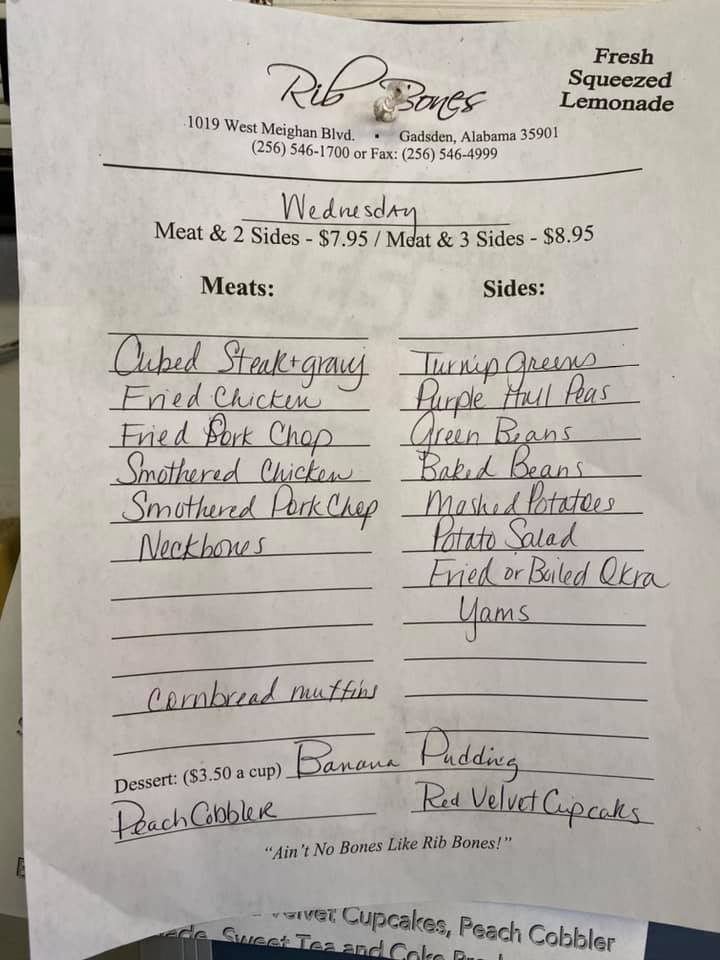 Rib Bones
Fresh
Squeezed
Lemonade
1019 West Meighan Blvd. • Gadsden, Alabama 35901
(256) 546-1700 or Fax: (256) 546-4999
Wednesday
Meat & 2 Sides - $7.95 / Meat & 3 Sides - $8.95
Meats:
Cubed Steak + gravy
Fried Chicken
Fried Pork Chop
Smothered Chicken
Smothered Pork Chop
Neckbones
cornbread muffins
Sides:
Turnip Greens
Purple Hull Peas
Green Beans
Baked Beans
Mashed Potatoes
Potato Salad
Fried or Boiled Okra
Yams
Dessert: ($3.50 a cup) Banana Pudding
Peach Cobbler Red Velvet Cupcaks
"Ain't No Bones Like Rib Bones!"
Velvet Cupcakes, Peach Cobbler
Sweet Tea and Coke